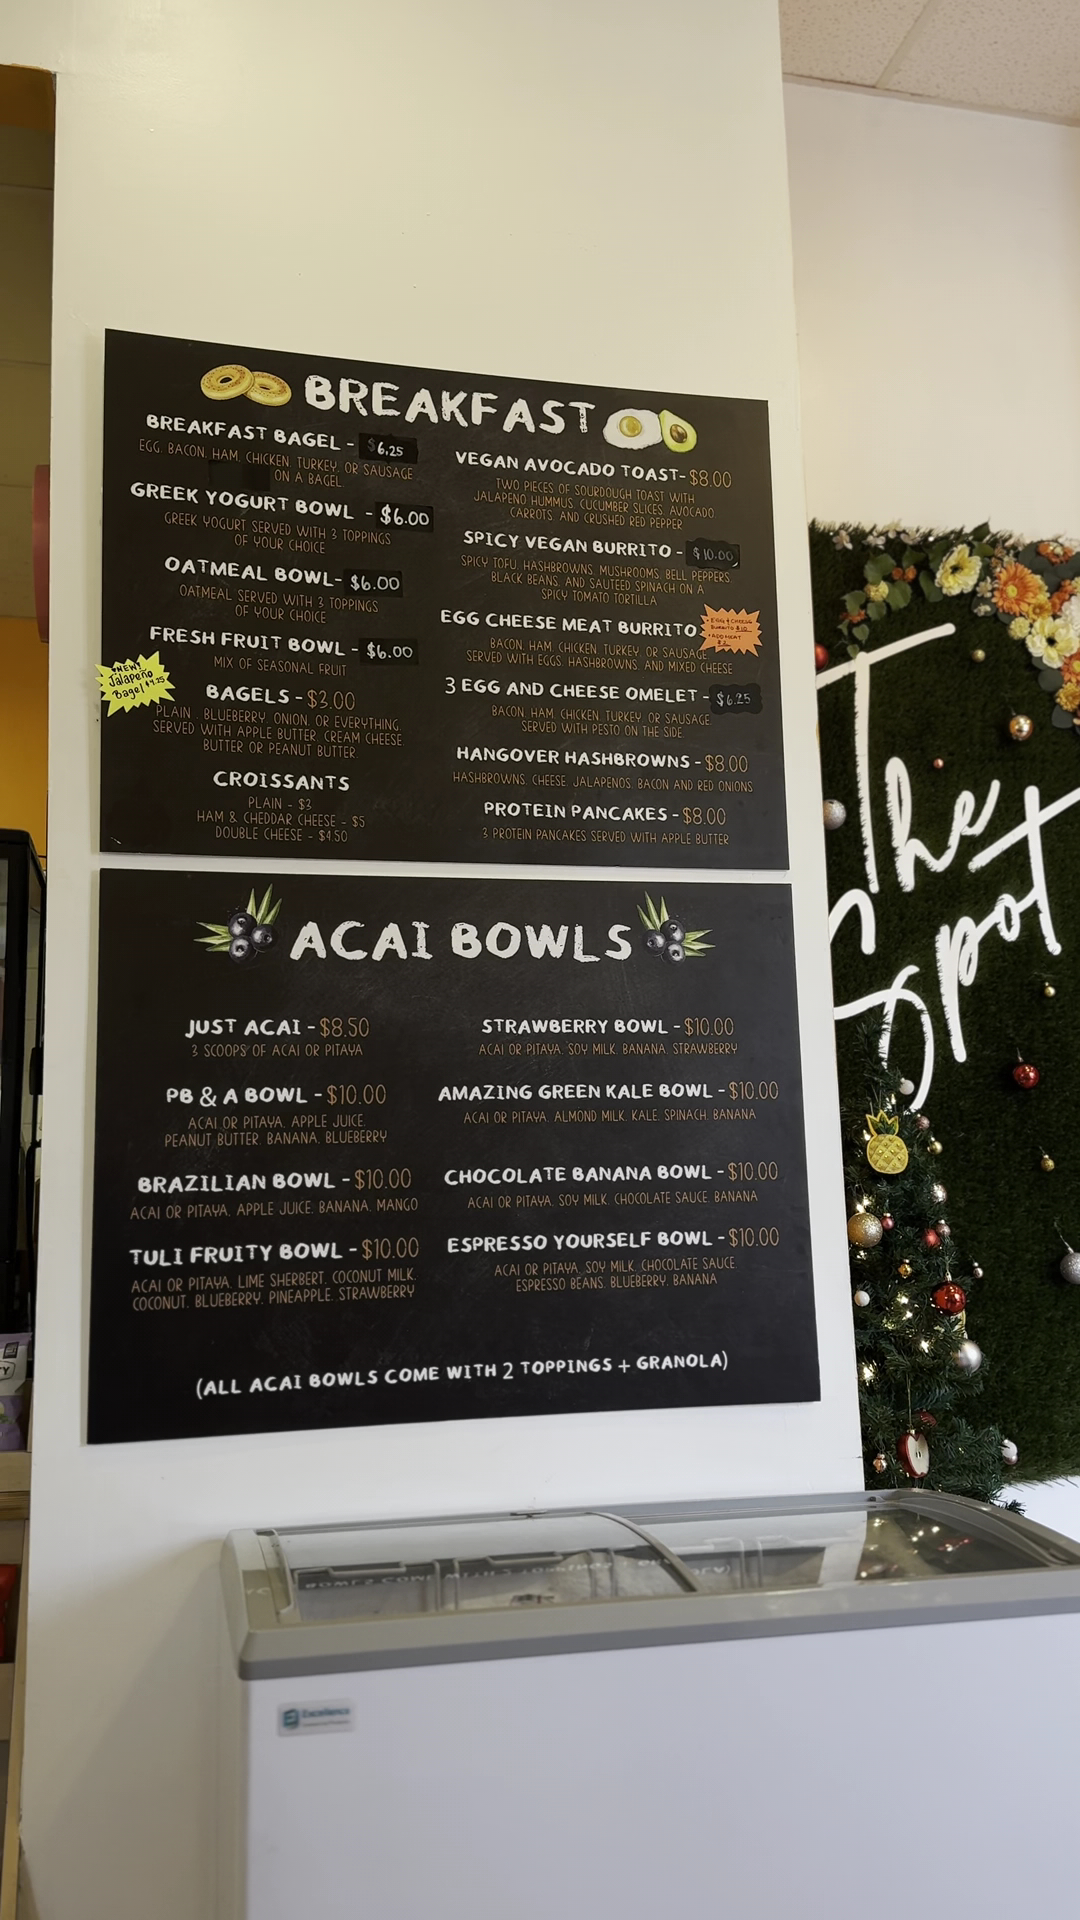 BREAKFAST
BREAKFAST BAGEL - $6.25
EGG, BACON, HAM, CHICKEN, TURKEY, OR SAUSAGE
ON A BAGEL.
GREEK YOGURT BOWL - $6.00
GREEK YOGURT SERVED WITH 3 TOPPINGS
OF YOUR CHOICE
OATMEAL BOWL- $6.00
OATMEAL SERVED WITH 3 TOPPINGS
OF YOUR CHOICE
FRESH FRUIT BOWL - $6.00
MIX OF SEASONAL FRUIT
NEW!
Jalapeño
Bagel $4.25
BAGELS - $3.00
PLAIN, BLUEBERRY, ONION, OR EVERYTHING.
SERVED WITH APPLE BUTTER, CREAM CHEESE,
BUTTER OR PEANUT BUTTER.
CROISSANTS
PLAIN - $3
HAM & CHEDDAR CHEESE - $5
DOUBLE CHEESE - $4.50
VEGAN AVOCADO TOAST- $8.00
TWO PIECES OF SOURDOUGH TOAST WITH
JALAPENO HUMMUS, CUCUMBER SLICES, AVOCADO,
CARROTS, AND CRUSHED RED PEPPER
SPICY VEGAN BURRITO - $10.00
SPICY TOFU, HASHBROWNS, MUSHROOMS, BELL PEPPERS,
BLACK BEANS, AND SAUTEED SPINACH ON A
SPICY TOMATO TORTILLA
EGG CHEESE MEAT BURRITO
• EGG & CHEESE
BURRITO $10
• ADD MEAT
$2
BACON, HAM, CHICKEN, TURKEY, OR SAUSAGE.
SERVED WITH EGGS, HASHBROWNS, AND MIXED CHEESE
3 EGG AND CHEESE OMELET - $6.25
BACON, HAM, CHICKEN, TURKEY, OR SAUSAGE
SERVED WITH PESTO ON THE SIDE.
HANGOVER HASHBROWNS - $8.00
HASHBROWNS, CHEESE, JALAPENOS, BACON AND RED ONIONS
PROTEIN PANCAKES - $8.00
3 PROTEIN PANCAKES SERVED WITH APPLE BUTTER
ACAI BOWLS
JUST ACAI - $8.50
3 SCOOPS OF ACAI OR PITAYA
PB & A BOWL - $10.00
ACAI OR PITAYA, APPLE JUICE,
PEANUT BUTTER, BANANA, BLUEBERRY
BRAZILIAN BOWL - $10.00
ACAI OR PITAYA, APPLE JUICE, BANANA, MANGO
TULI FRUITY BOWL - $10.00
ACAI OR PITAYA, LIME SHERBERT, COCONUT MILK,
COCONUT, BLUEBERRY, PINEAPPLE, STRAWBERRY
STRAWBERRY BOWL - $10.00
ACAI OR PITAYA, SOY MILK, BANANA, STRAWBERRY
AMAZING GREEN KALE BOWL - $10.00
ACAI OR PITAYA, ALMOND MILK, KALE, SPINACH, BANANA
CHOCOLATE BANANA BOWL - $10.00
ACAI OR PITAYA, SOY MILK, CHOCOLATE SAUCE, BANANA
ESPRESSO YOURSELF BOWL - $10.00
ACAI OR PITAYA, SOY MILK, CHOCOLATE SAUCE,
ESPRESSO BEANS, BLUEBERRY, BANANA
(ALL ACAI BOWLS COME WITH 2 TOPPINGS + GRANOLA)
The
Spot
Excellence